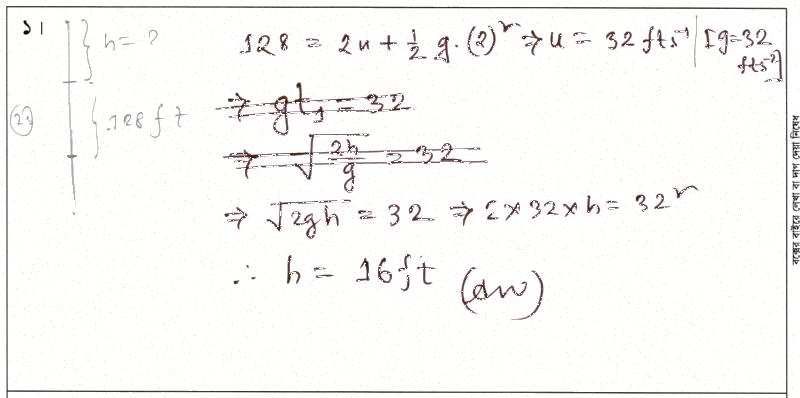 ১।
h = ?
128 = 2u + 1/2 g. (2)² ⇒ u = 32 fts⁻¹ [g=32 fts⁻²]
128 ft
⇒ gt₁ = 32
⇒ √(2h/g) = 32
⇒ √2gh = 32 ⇒ 2×32×h = 32²
∴ h = 16 ft (Ans)
বক্সের বাইরে লেখা বা দাগ দেয়া নিষেধ